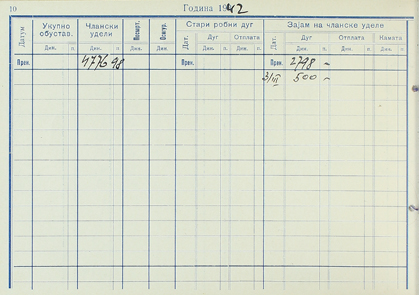 10 Година 1942
Датум Укупно обустав. Члански удели Стари робни дуг Зајам на чланске уделе
Дат. Дуг Отплата Дат. Дуг Отплата Камата
Дин. п. Дин. п. Дин. Дин. Дин. п. Дин. п. Дин. п. Дин. п. Дин. п.
Прен. 4776 98 Прен. Прен. 2798 –
3/VI 500 –